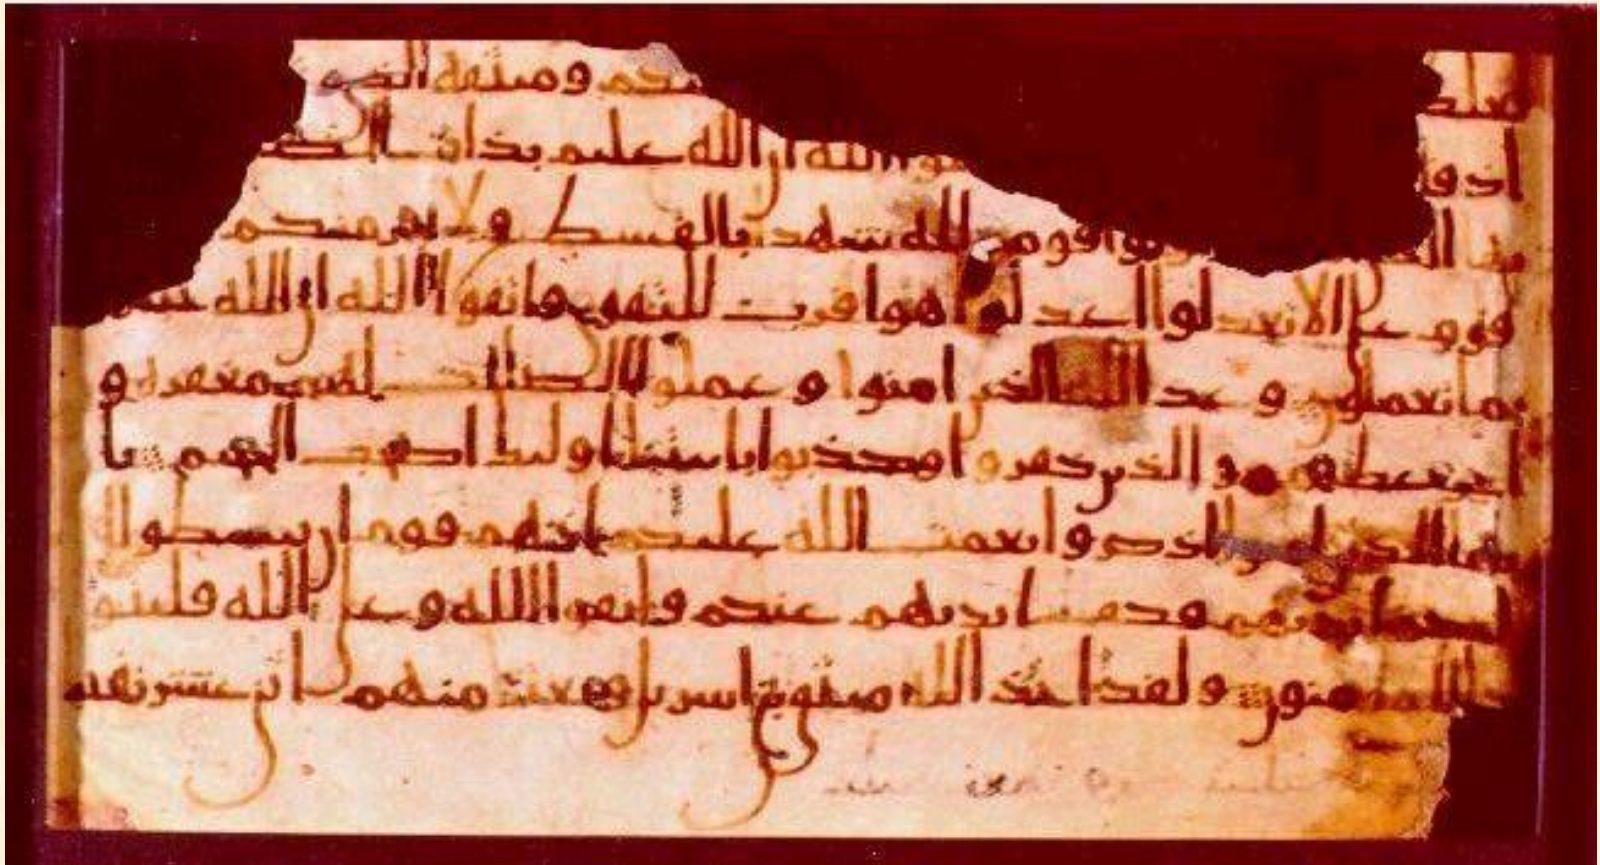 وميثقه الذي
اذ الله ان الله عليم بذات
قومين لله شهدا بالقسط ولا يجرمنكم
قوم على الا تعدلوا اعدلوا هو اقرب للتقوى واتقوا الله ان الله
بما تعملون وعد الله الذين امنوا وعملوا الصلحت لهم مغفرة و
اجر عظيم والذين كفروا وكذبوا بايتنا اوليك اصحب الجحيم يا
يها الذين امنوا اذكروا نعمت الله عليكم اذ هم قوم ان يبسطوا ا
ليكم ايديهم فكف ايديهم عنكم واتقوا الله وعلى الله فليتو
كل المومنون ولقد اخذ الله ميثق بني اسريل وبعثنا منهم اثني عشر نقيبا